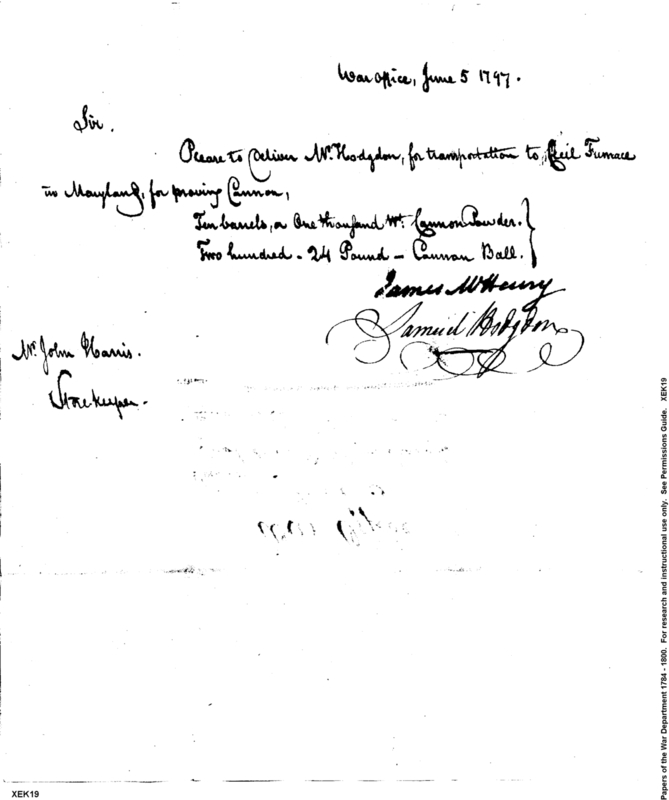 War office, June 5 1797.
Sir.
Please to deliver Mr. Hodgdon, for transportation to, Cecil Furnace
in Maryland, for proving Cannon,
Ten barrels, or One thousand Wt. Cannon Powder.
Two hundred - 24 Pound - Cannon Ball.
James McHenry
Samuel Hodgdon
Mr. John Harris.
Storekeeper.
XEK19
Papers of the War Department 1784 - 1800. For research and instructional use only. See Permissions Guide. XEK19